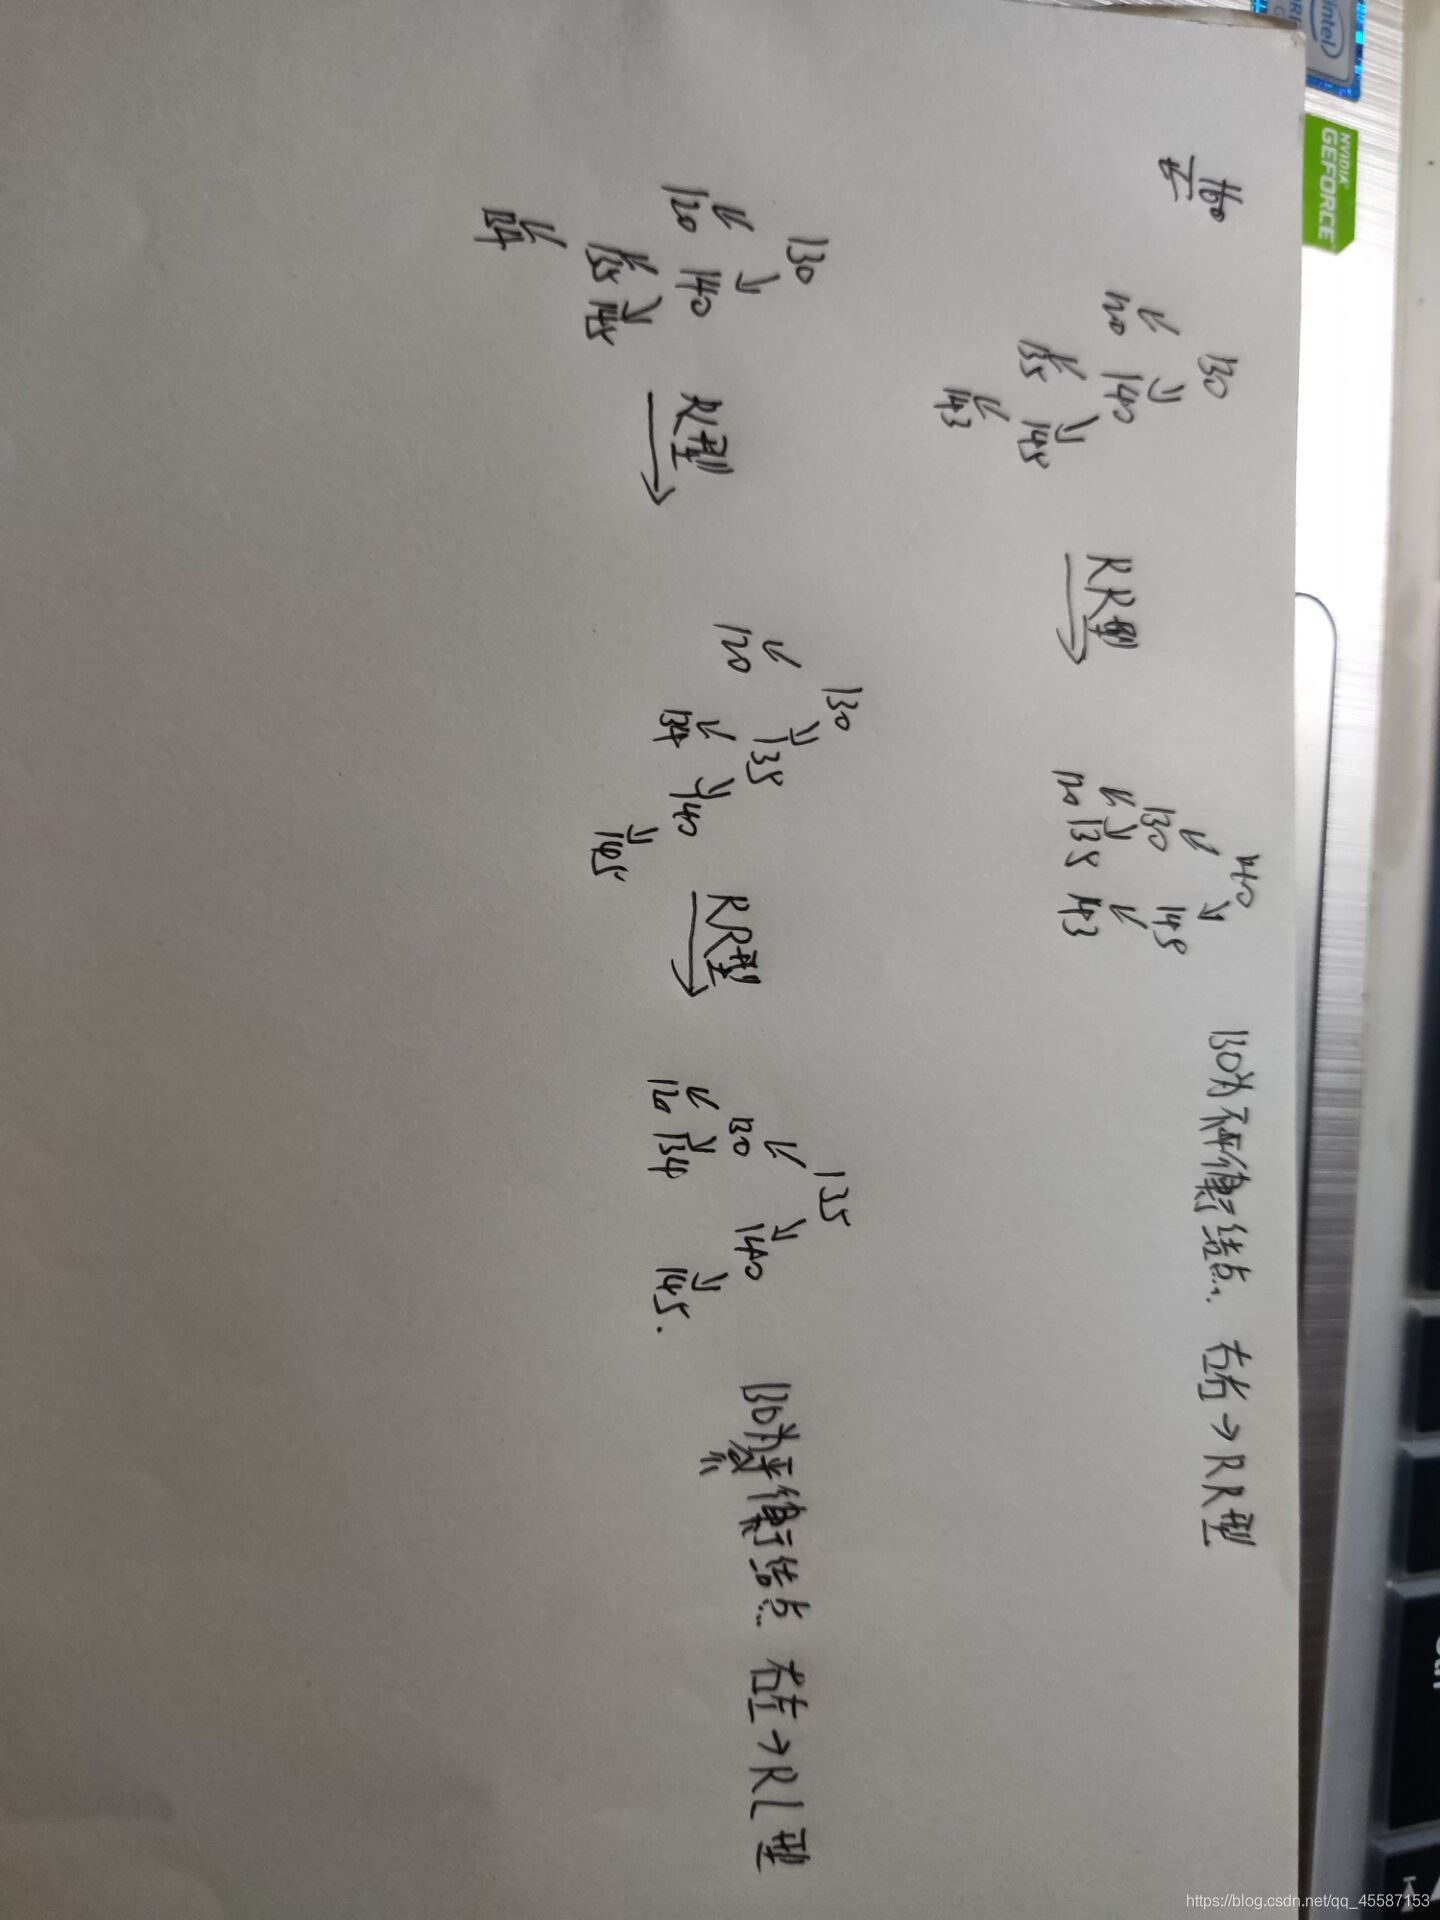 130
120 140
135 145
143
RR型
140
130 145
120 135 143
130为不平衡结点. 右右→RR型
130
120 140
135 145
134
R型
130
120 135
134 140
145
RR型
135
130 140
120 134 145.
130为平衡结点. 右左→RL型
intel
NVIDIA
GEFORCE
https://blog.csdn.net/qq_45587153